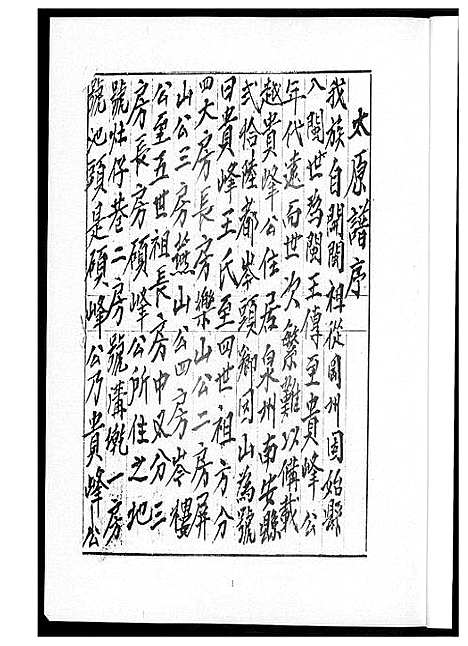 太原譜序
我族自開閩祖從固州固始縣
入閩世為閩王傳至貴峰公
年代遠而世次繁難以備載
越貴峰公住居泉州南安縣
弍拾陸都岑頭鄉因山為號
曰貴峰王氏至四世祖方分
四大房長房樂山公二房屏
山公三房燕山公四房岑樓
公至五世祖長房中又分三
房長房碩峰公所住之地
號灶仔巷二房號溝墘一房
號池頭是碩峰公乃貴峰公
1